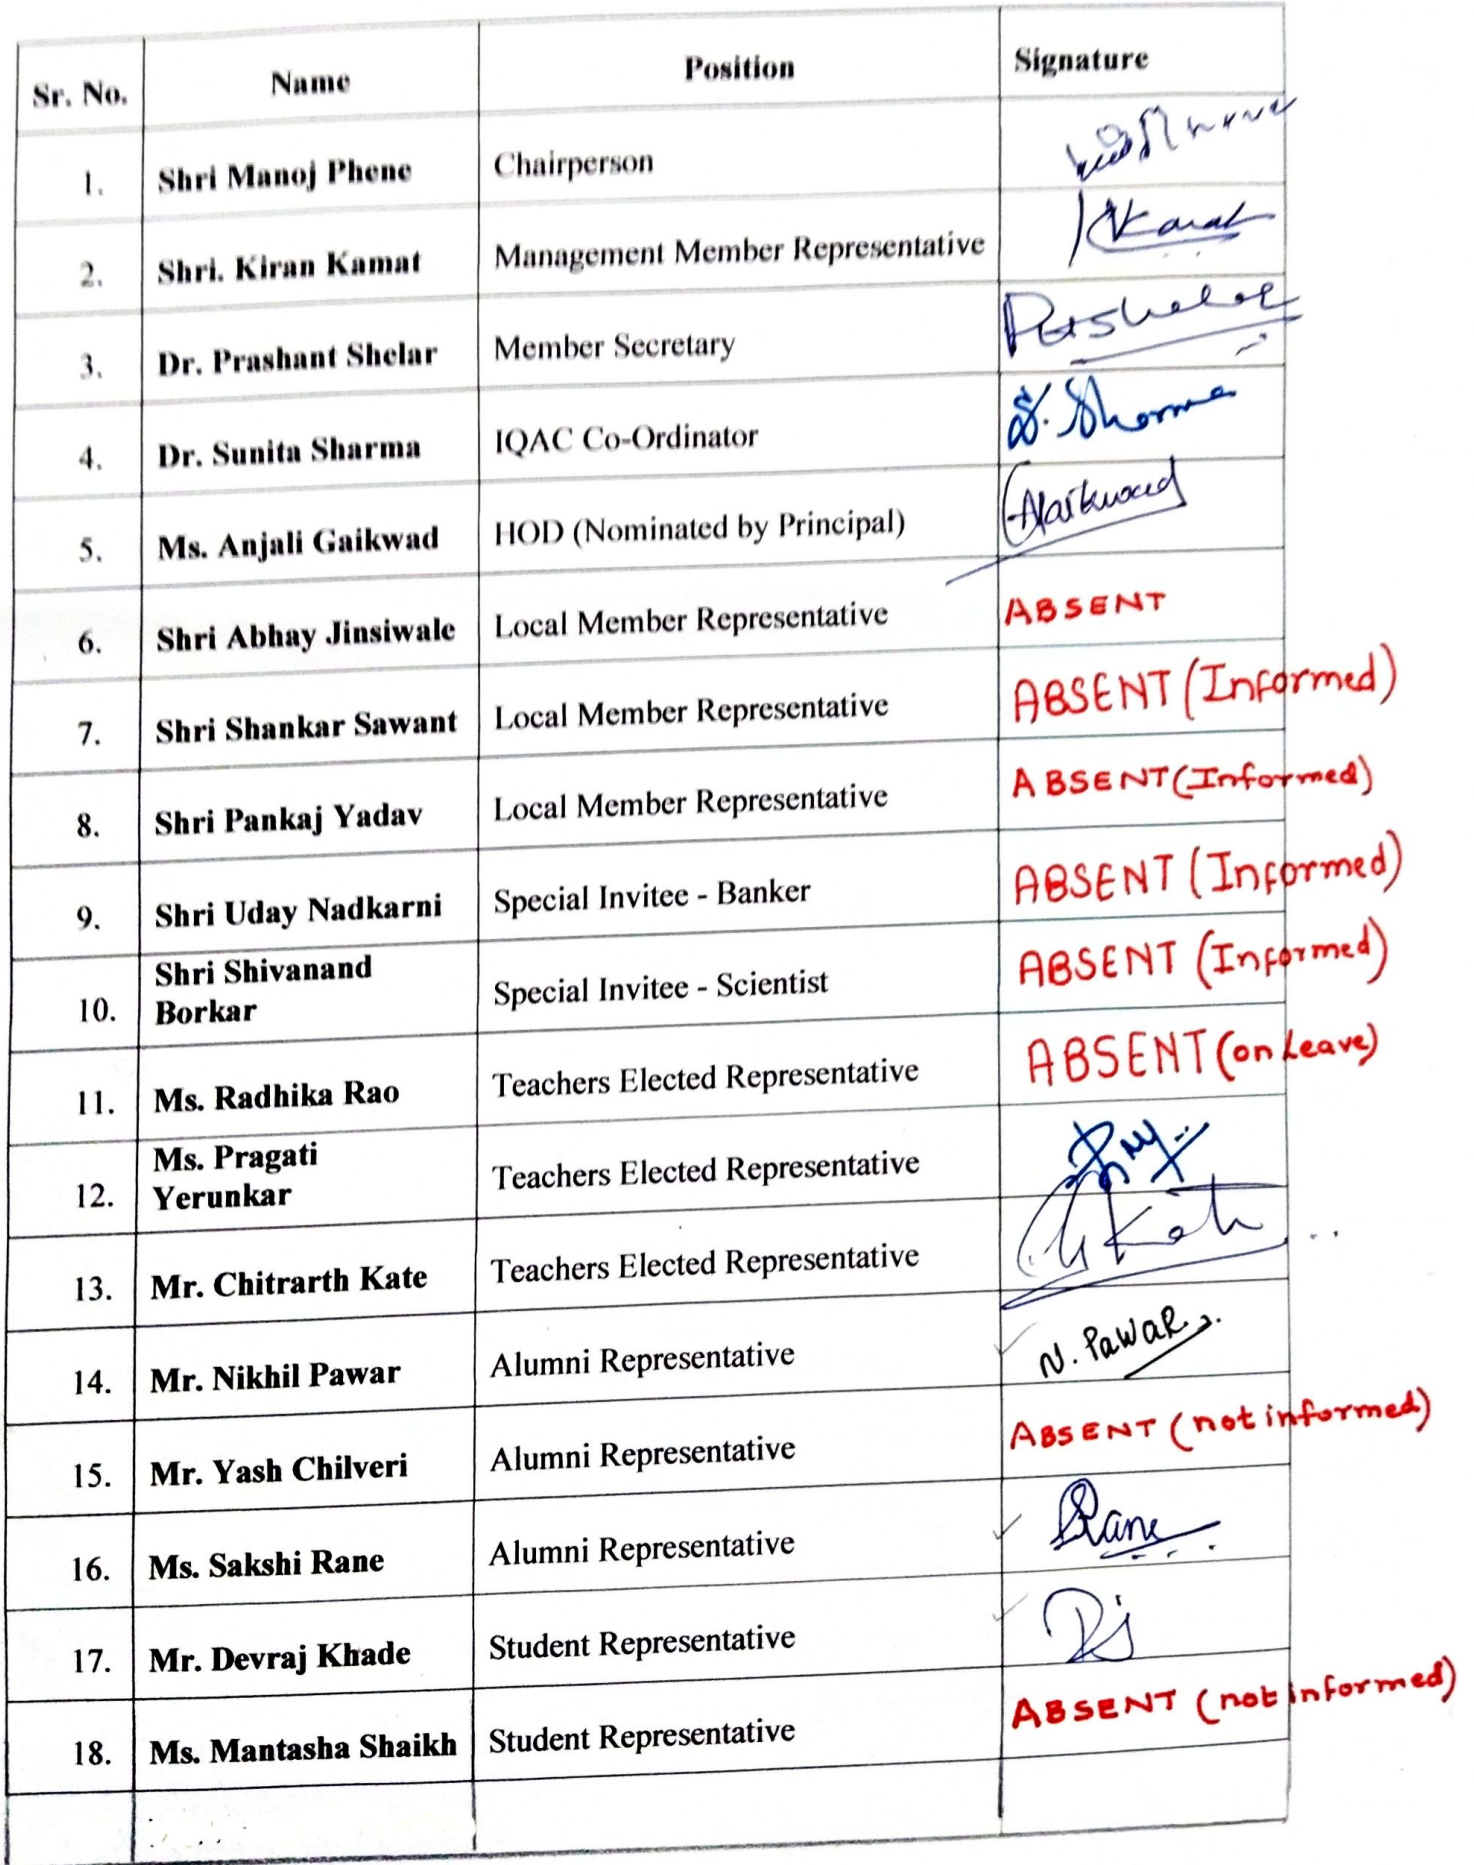 Sr. No. Name Position Signature
1. Shri Manoj Phene Chairperson
2. Shri. Kiran Kamat Management Member Representative Kamat
3. Dr. Prashant Shelar Member Secretary Pshelar
4. Dr. Sunita Sharma IQAC Co-Ordinator S. Sharma
5. Ms. Anjali Gaikwad HOD (Nominated by Principal) Gaikwad
6. Shri Abhay Jinsiwale Local Member Representative ABSENT
7. Shri Shankar Sawant Local Member Representative ABSENT (Informed)
8. Shri Pankaj Yadav Local Member Representative ABSENT (Informed)
9. Shri Uday Nadkarni Special Invitee - Banker ABSENT (Informed)
Shri Shivanand
10. Borkar Special Invitee - Scientist ABSENT (Informed)
11. Ms. Radhika Rao Teachers Elected Representative ABSENT (on Leave)
Ms. Pragati
12. Yerunkar Teachers Elected Representative
13. Mr. Chitrarth Kate Teachers Elected Representative Kate
14. Mr. Nikhil Pawar Alumni Representative N. PaWaR
15. Mr. Yash Chilveri Alumni Representative ABSENT (not informed)
16. Ms. Sakshi Rane Alumni Representative SRane
17. Mr. Devraj Khade Student Representative
18. Ms. Mantasha Shaikh Student Representative ABSENT (not informed)